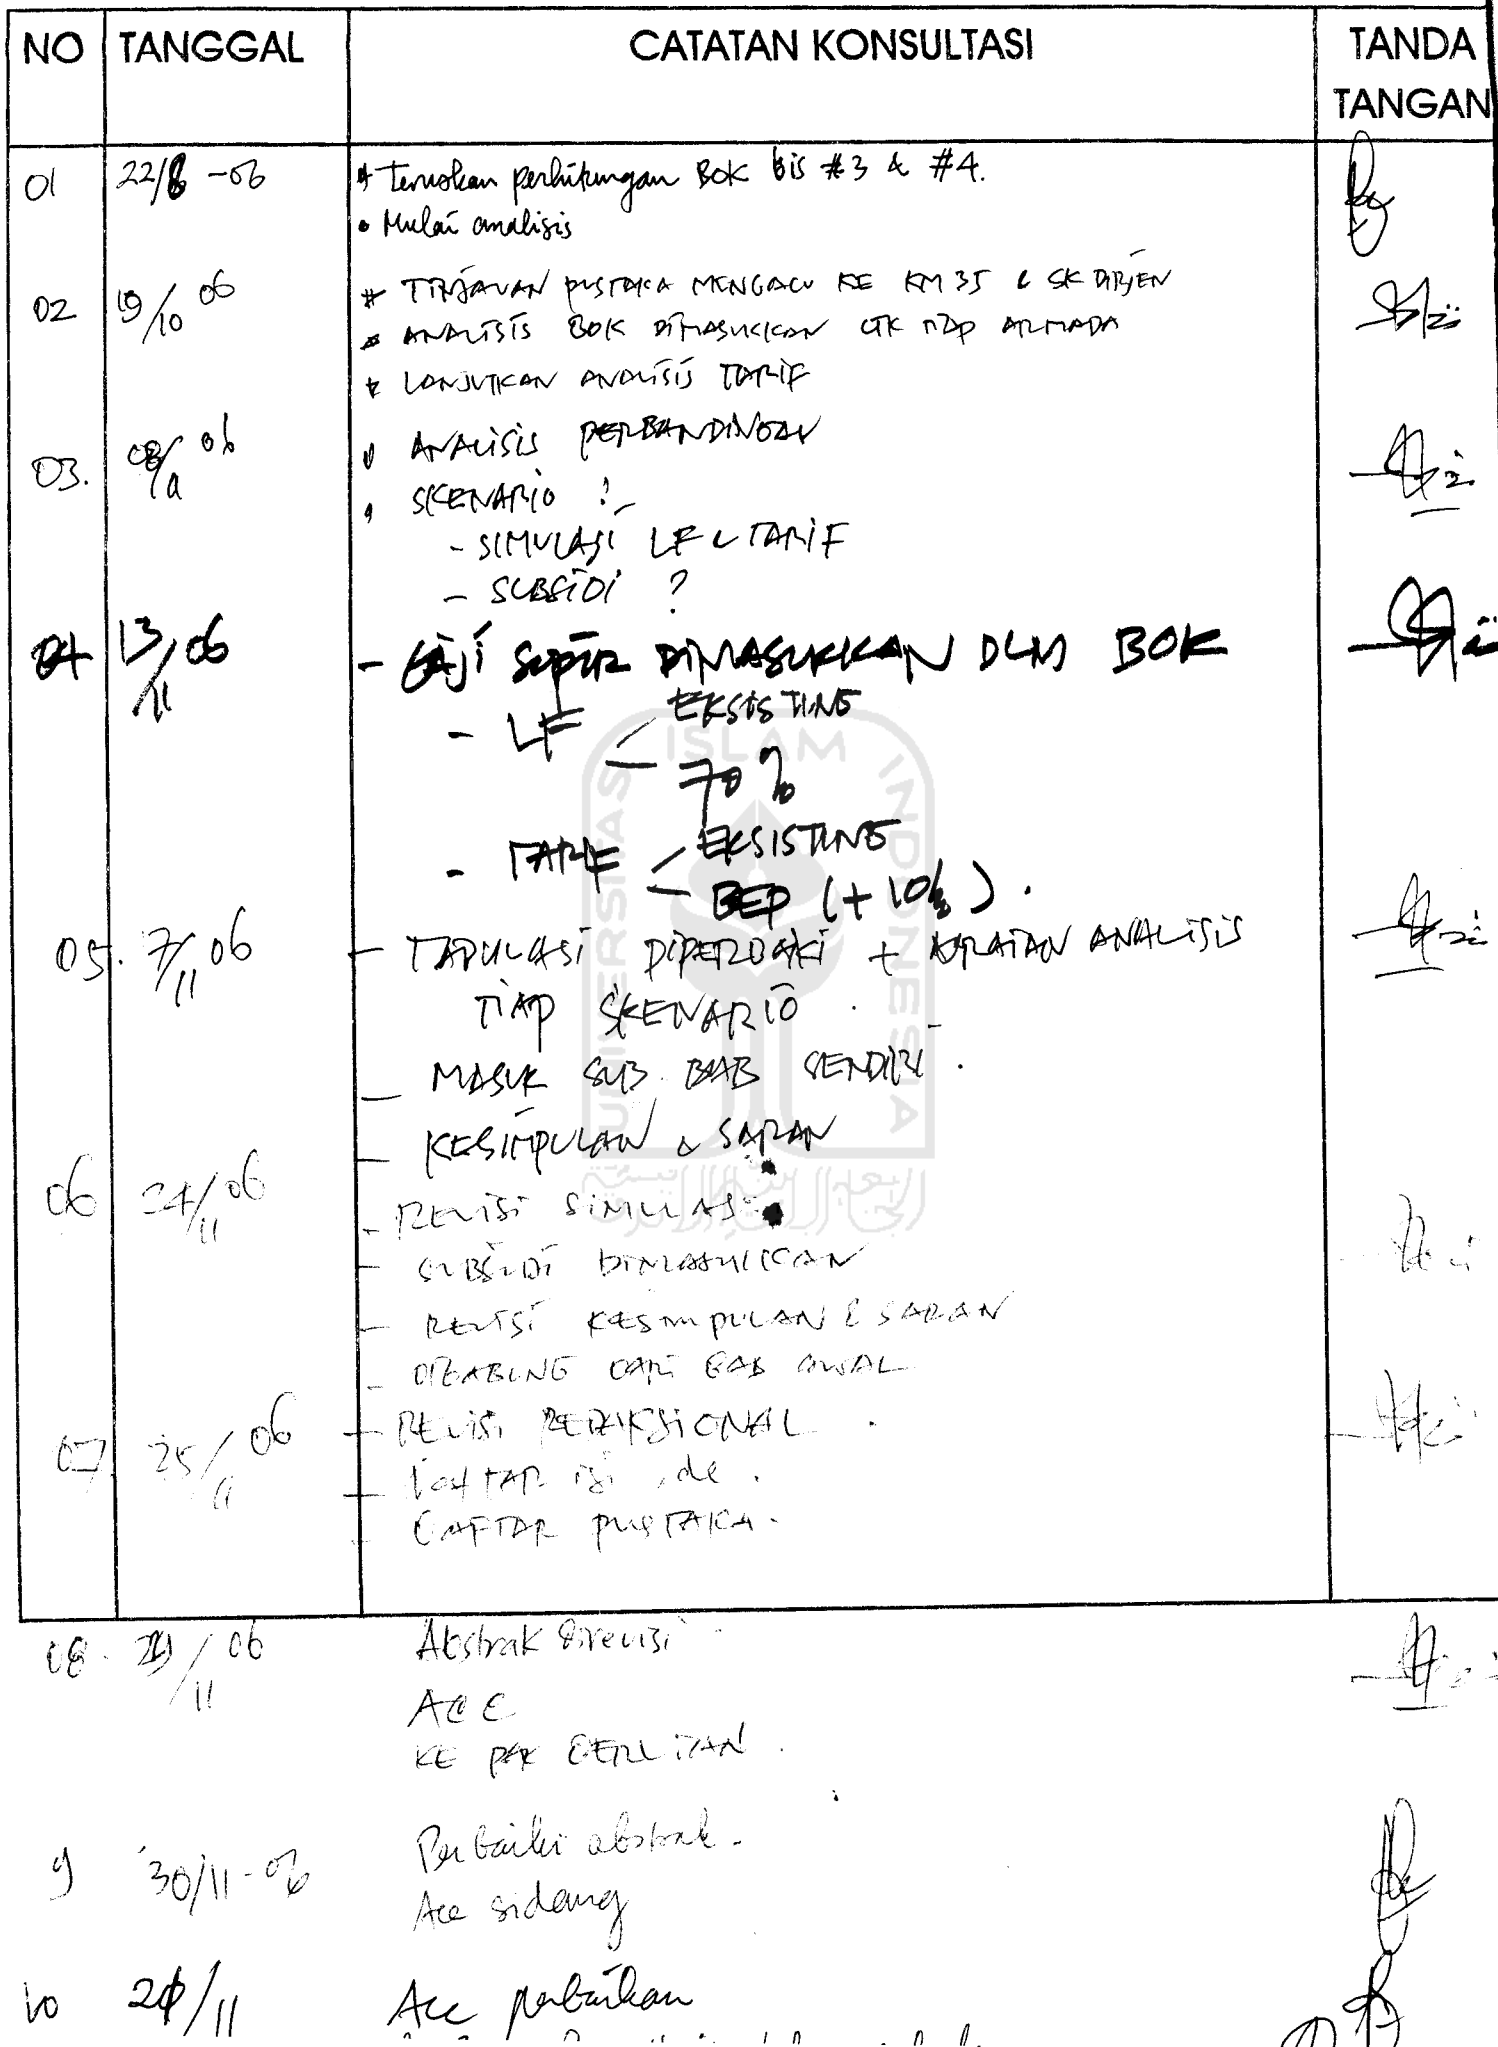 NO TANGGAL CATATAN KONSULTASI TANDA TANGAN
01 22/8 -06 * Teruskan perhitungan BOK bis #3 & #4.
• Mulai analisis
02 19/10 06 * TINJAUAN PUSTAKA MENGACU KE KM 35 & SK DIRJEN
* ANALISIS BOK DIMASUKKAN UTK TIAP ARMADA
* LANJUTKAN ANALISIS TARIF
03. 06 ANALISIS PERBANDINGAN
SKENARIO ?
- SIMULASI LF & TARIF
- SUBSIDI ?
04 13/11 06 - GAJI SUPIR DIMASUKKAN DLM BOK
- LF EKSISTING
70 %
- TARIF EKSISTING
BEP (+ 10%).
05. 7/11 06 - TABULASI DIPERBAIKI + URAIAN ANALISIS
TIAP SKENARIO.
- MASUK SUB BAB SENDIRI.
- KESIMPULAN & SARAN
06 24/11 06 - REVISI SIMULASI
- SUBSIDI DIMASUKKAN
- REVISI KESIMPULAN & SARAN
- DIGABUNG DARI BAB AWAL
07 25/11 06 - REVISI REDAKSIONAL.
- DAFTAR ISI,
- DAFTAR PUSTAKA.
08. /11 06 Abstrak direvisi
ACC
KE PAK
9 30/11-06 Perbaiki abstrak.
Acc sidang
10 /11 Acc perbaikan
UNIVERSITAS ISLAM INDONESIA